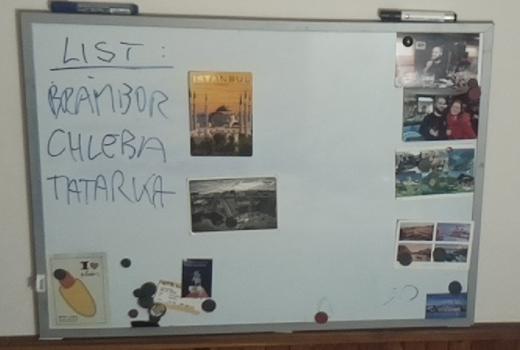 LIST:
BRAMBOR
CHLEBA
TATARKA
ISTANBUL
I